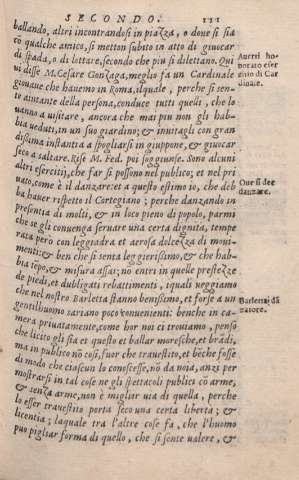 SECONDO. 111
ballando, altri incontrandosi in piazza, o doue si sia
cō qualche amico, si metton subito in atto di giuocar
di spada, o di lottare, secondo che piu si dilettano. Qui
ui disse M. Cesare Gonzaga, meglio fa un Cardinale
giouane che hauemo in Roma, ilquale, perche si sen-
te aiutante della persona, conduce tutti quelli, che lo
uanno a uisitare, ancora che mai piu non gli hab-
bia ueduti, in un suo giardino; & inuitagli con gran
dissima instantia a spogliarsi in giuppone, & giuocar
seco a saltare. Rise M. Fed. poi soggiunse. Sono alcuni
altri esercitij, che far si possono nel publico; et nel pri
uato, come è il danzare: et a questo estimo io, che deb
ba hauer rispetto il Cortegiano; perche danzando in
presentia di molti, & in loco pieno di popolo, parmi
che se gli conuenga seruare una certa dignità, tempe
rata però con leggiadra et aerosa dolcezza di moui-
menti: & ben che si senta leggierissimo, & che hab-
bia tēpo, & misura assai; nō entri in quelle prestezze
de piedi, et dubligati rebattimenti, iquali ueggiamo
che nel nostro Barletta stanno benissimo, et forse a un
gentilhuomo sariano poco conuenienti: benche in ca-
mera priuatamente, come hor noi ci trouiamo, penso
che licito gli sia et questo et ballar moresche, et brādi,
ma in publico nō cosi, fuor che trauestito, et bēche fosse
di modo che ciascun lo conoscesse, nō da noia, anzi per
mostrarsi in tal cose ne gli spettacoli publici cō arme,
& senza arme, non è miglior uia di quella, perche
lo esser trauestito porta seco una certa liberta; &
licentia; laquale tra l'altre cose fa, che l'huomo
puo pigliar forma di quello, che si sente ualere, &
Auerti ho-
norato eser
citio di Car
dinale.
Oue si dee
danzare.
Barletta dā
zatore.